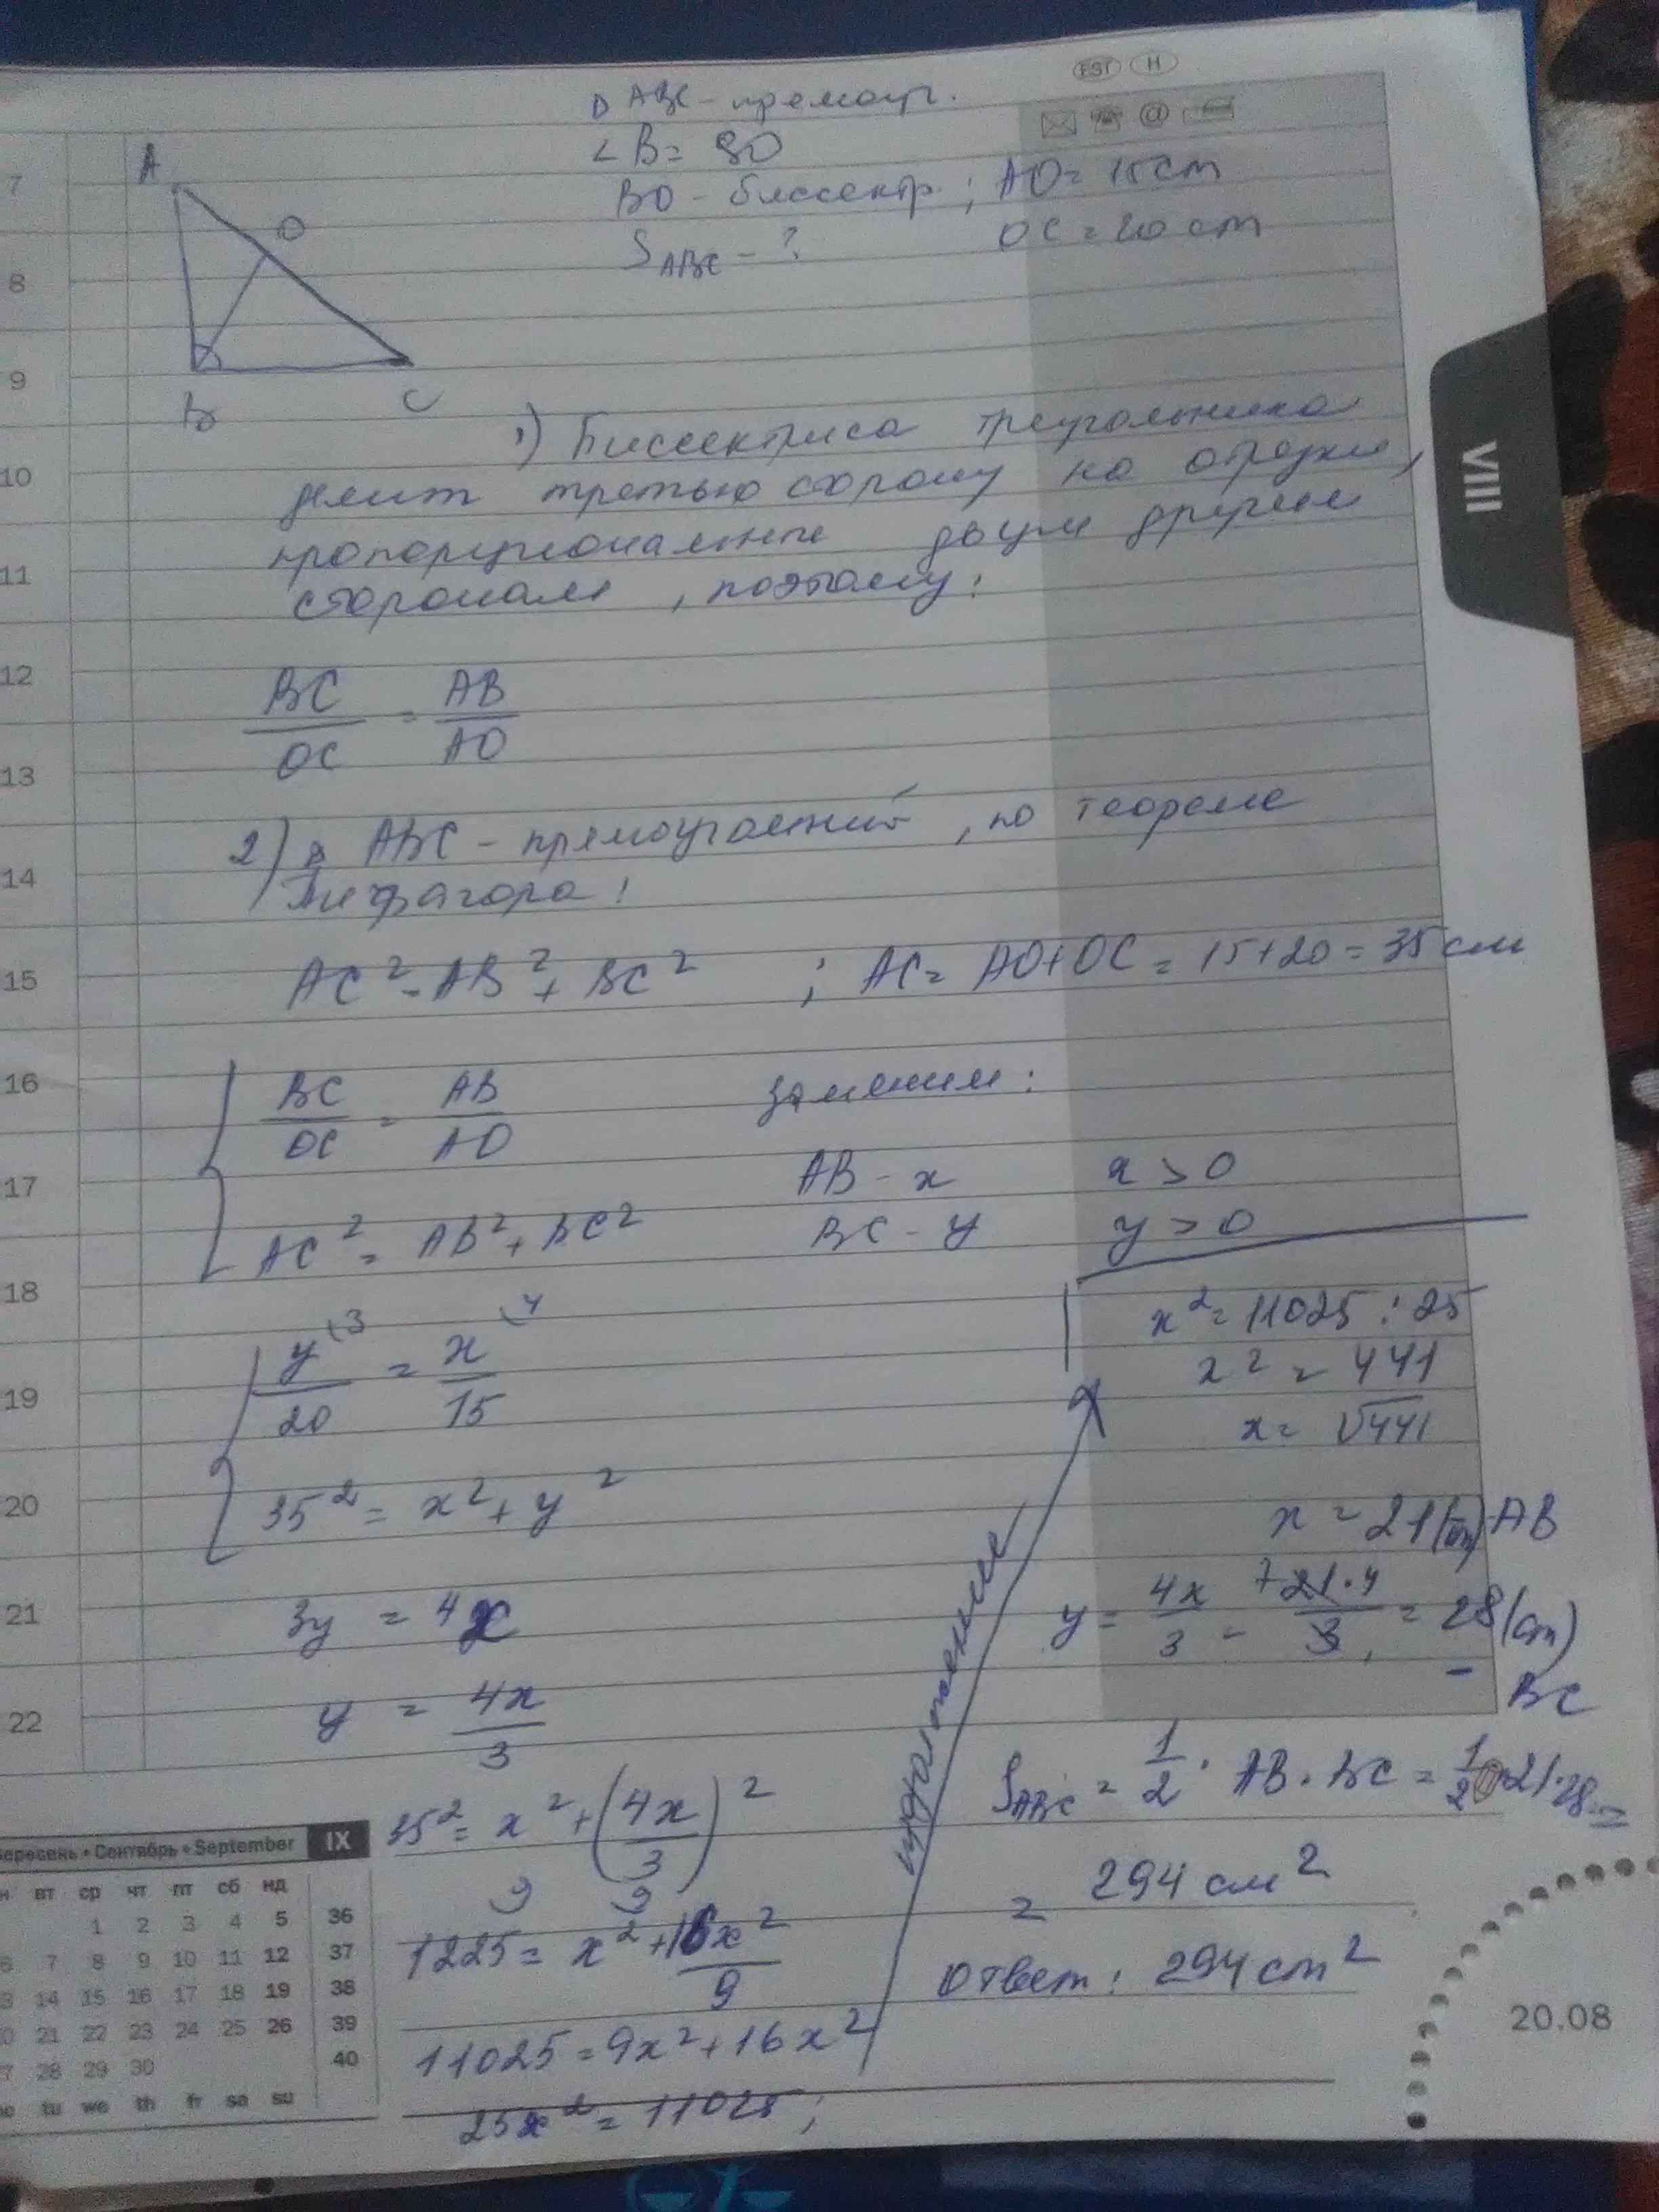 EST H
Δ ABC - прямоуг.
∠ B = 90
BO - биссектр. ; AO = 15 cm
S ABC - ? OC = 20 cm
A
O
B C
1) Биссектриса треугольника
делит третью сторону на отрезки,
пропорциональные двум другим
сторонам, поэтому:
BC/OC = AB/AO
2) Δ ABC - прямоугольный, по теореме
Пифагора:
AC² = AB² + BC² ; AC = AO + OC = 15 + 20 = 35 см
BC/OC = AB/AO заменим:
AB - x x > 0
AC² = AB² + BC² BC - y y > 0
y\3/20 = x\4/15
35² = x² + y²
3y = 4x
y = 4x/3
35² = x² + (4x/3)²
9 9
1225 = x² + 16x²/9
11025 = 9x² + 16x²
25x² = 11025;
продолжение
x² = 11025 : 25
x² = 441
x = √441
x = 21 (cm) - AB
y = 4x/3 = 7 21·4/3 1 = 28 (cm)
- BC
S ABC = 1/2 · AB · BC = 1/2 · 21 · 28 =
= 294 см²
Ответ: 294 cm²
7
8
9
10
11
12
13
14
15
16
17
18
19
20
21
22
VIII
Вересень • Сентябрь • September IX
н вт ср чт пт сб нд
1 2 3 4 5 36
6 7 8 9 10 11 12 37
13 14 15 16 17 18 19 38
20 21 22 23 24 25 26 39
27 28 29 30 40
mo tu we th fr sa su
20.08